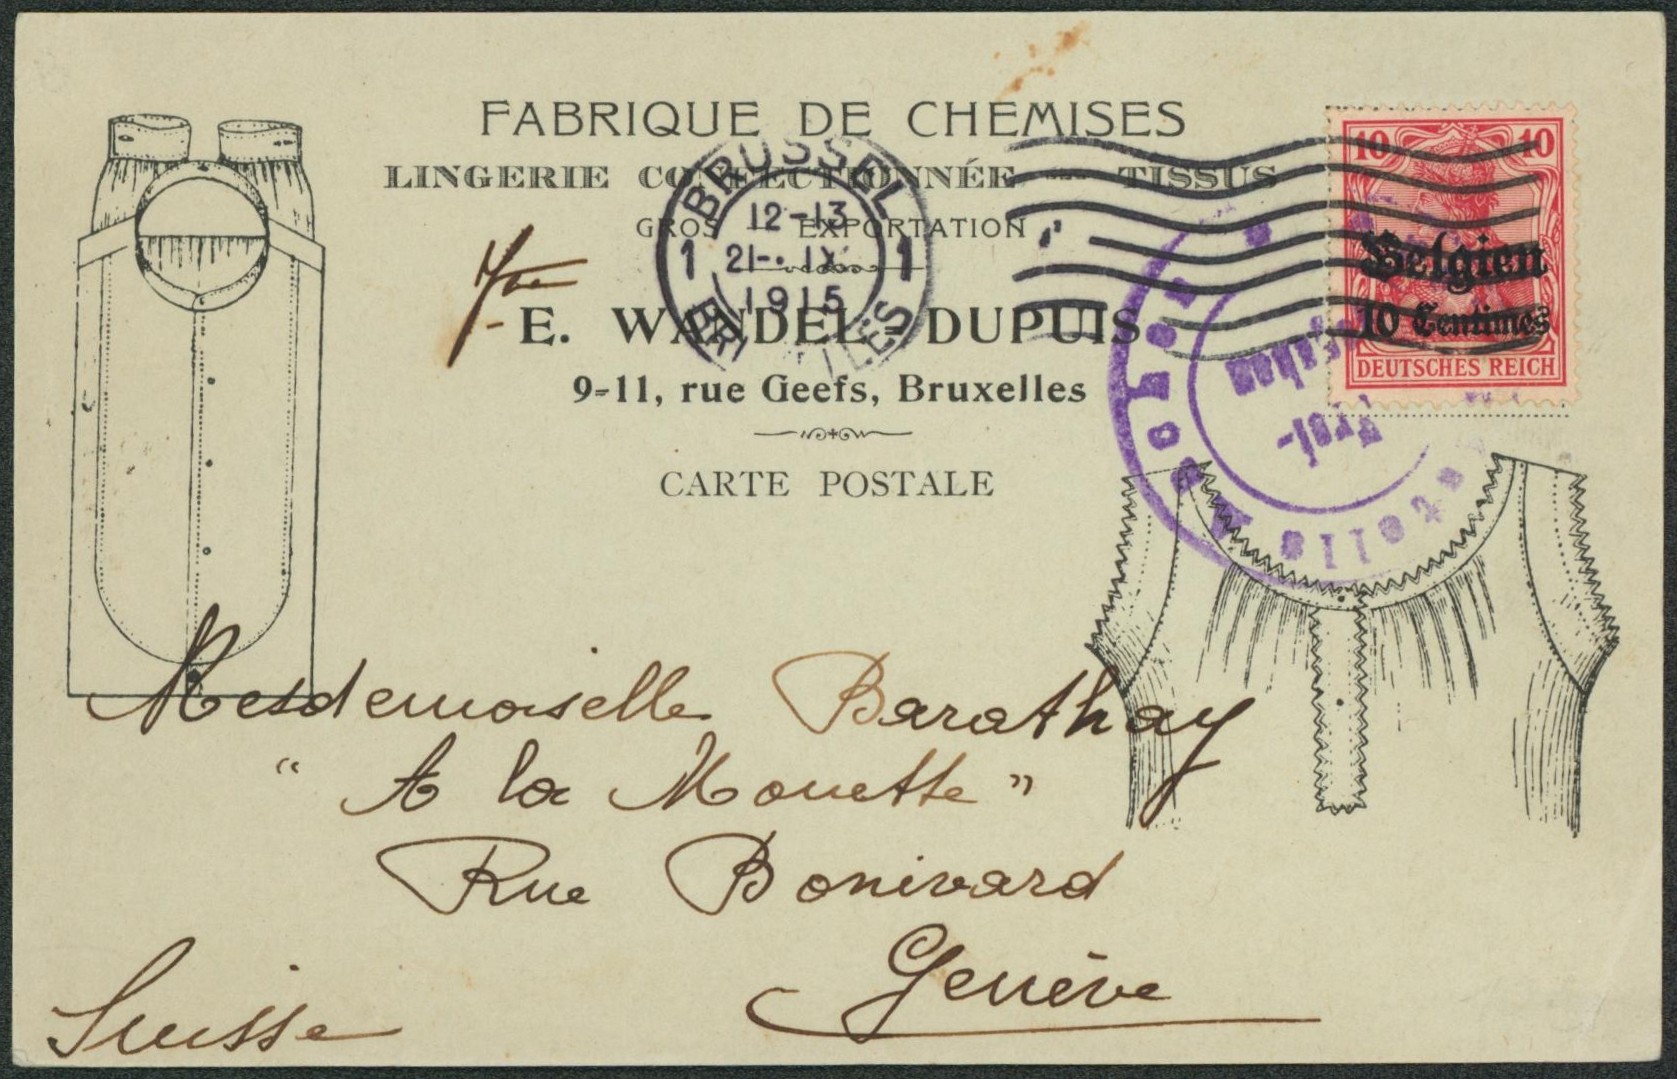 FABRIQUE DE CHEMISES
LINGERIE CONFECTIONNÉE TISSUS
GROS EXPORTATION
Vve E. WANDEL-DUPUIS
9-11, rue Geefs, Bruxelles
CARTE POSTALE
BRUSSEL
12-13
1 21-. IX 1
1915
BRUXELLES
10 10
Belgien
10 Centimes
DEUTSCHES REICH
Mesdemoiselle Barathay
“ A la Mouette ”
Rue Bonivard
Genève
Suisse